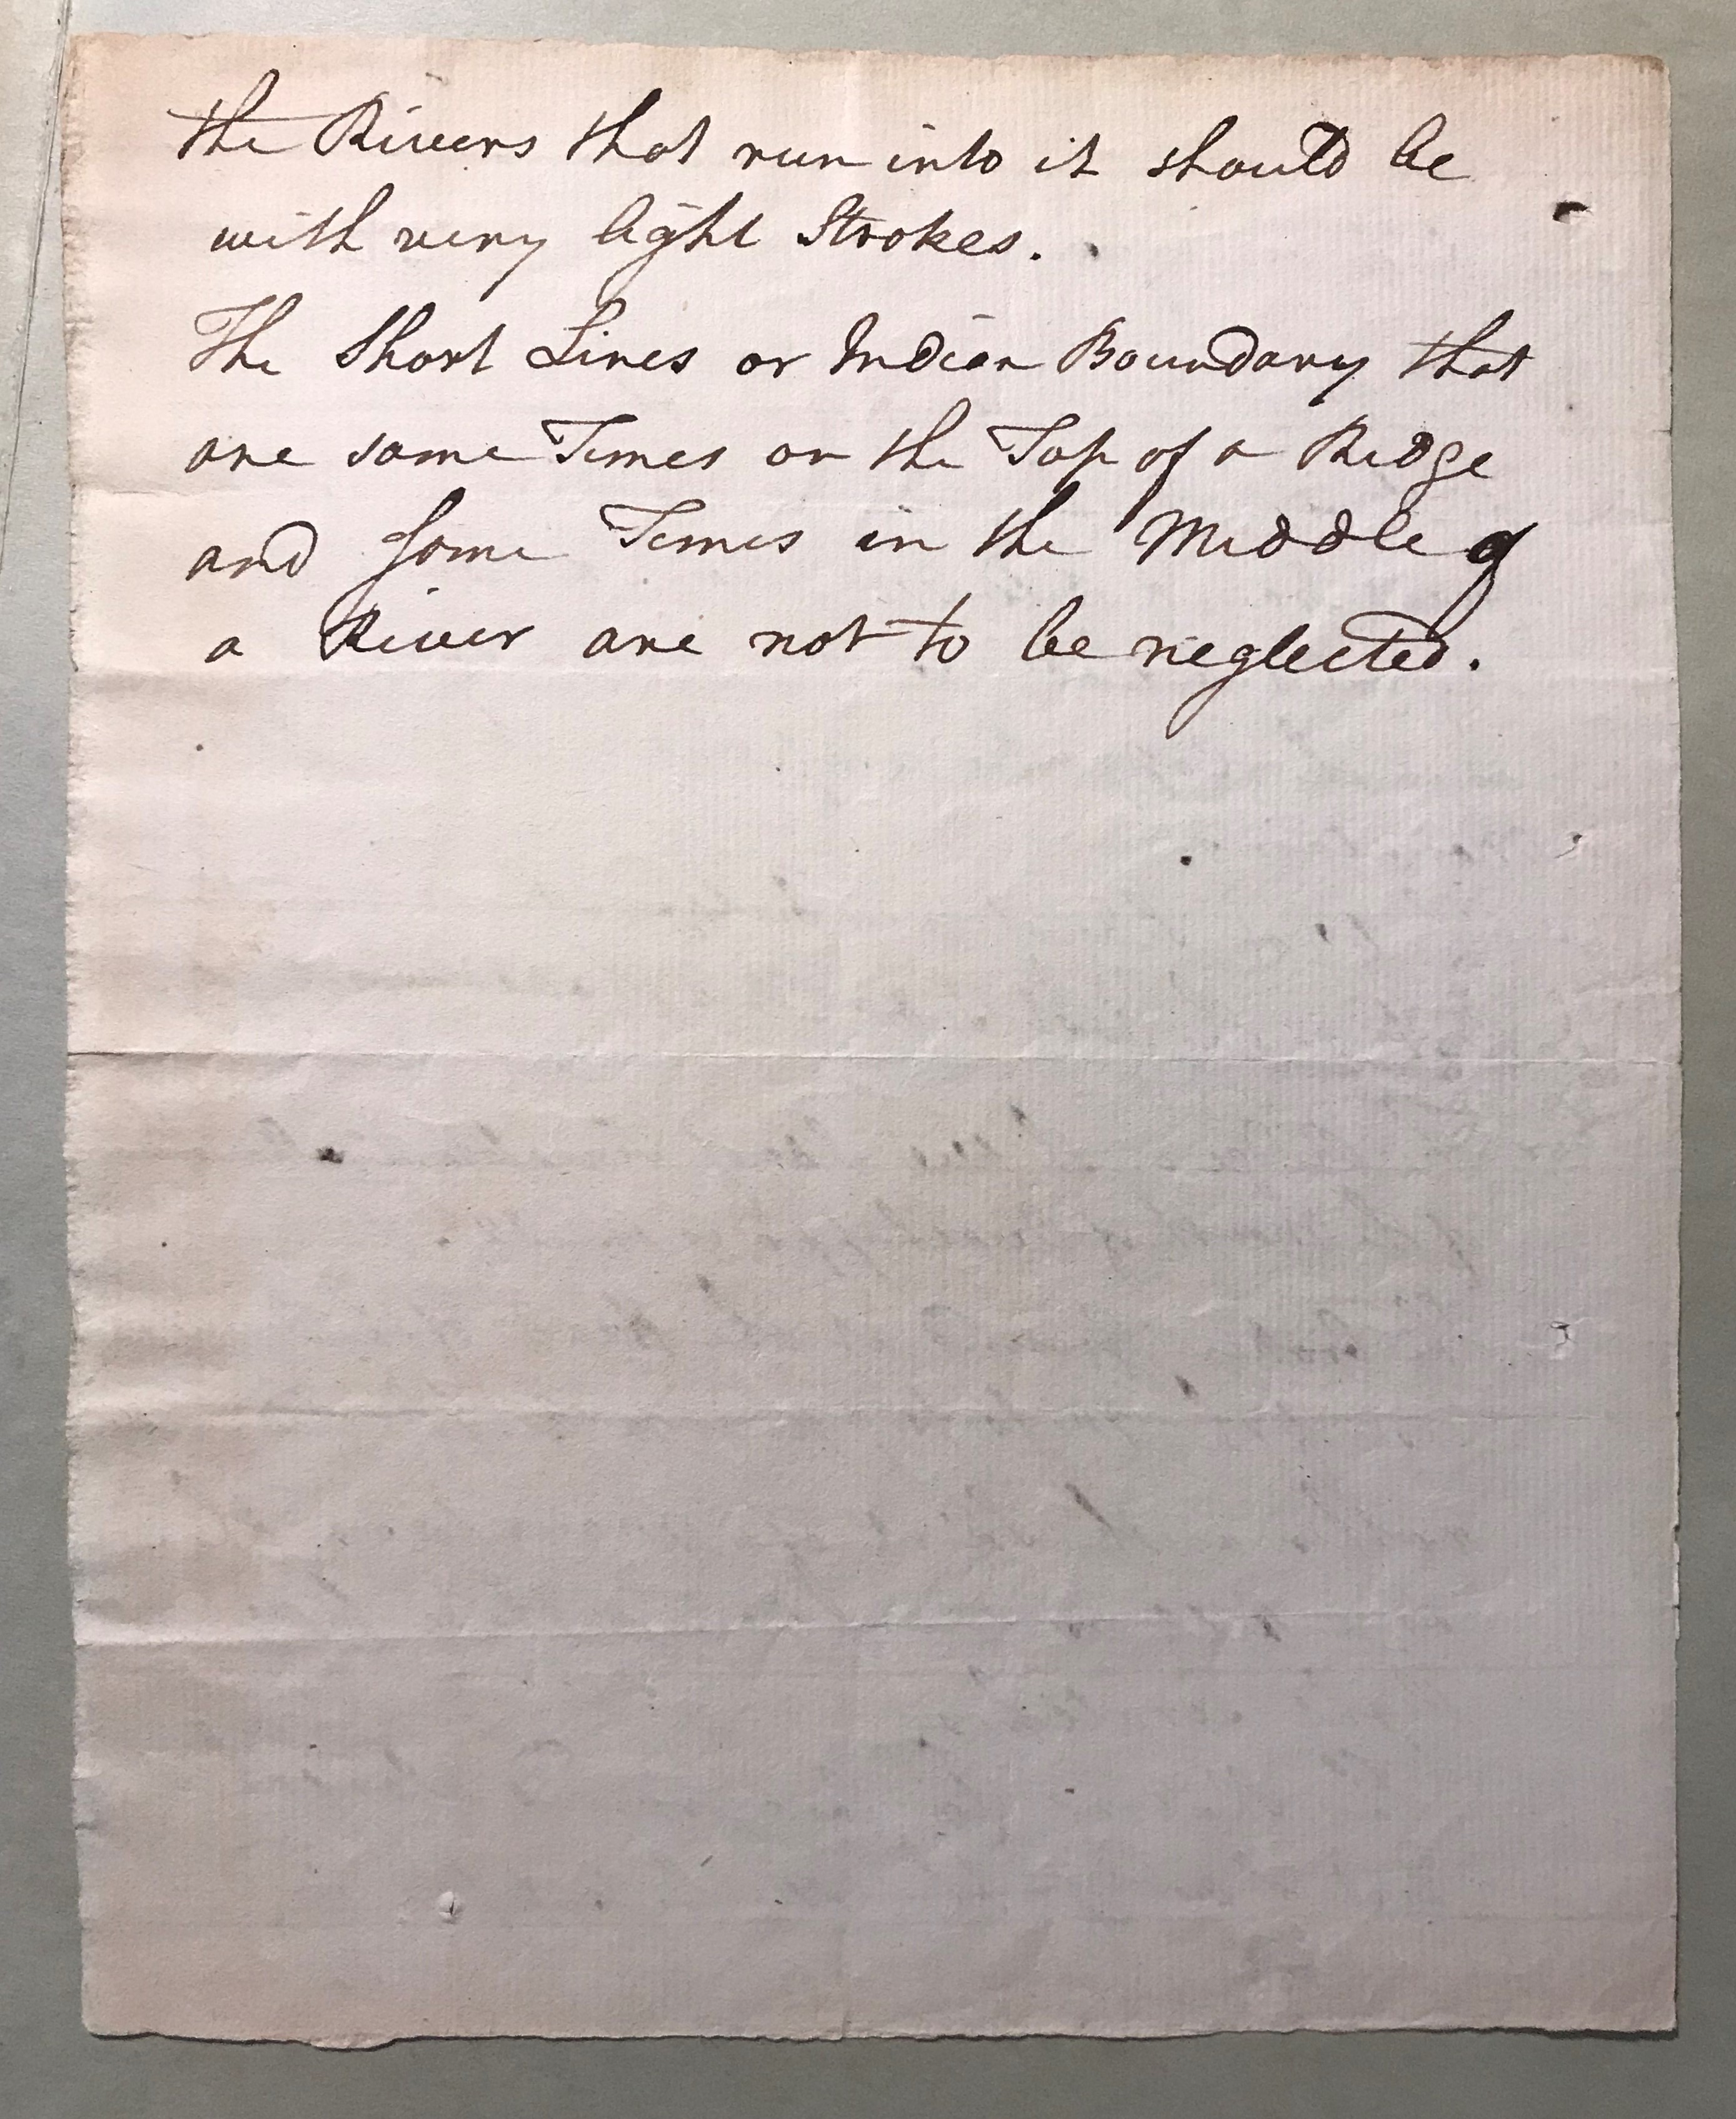 the Rivers that run into it should be
with very light Strokes.
The Short Lines or Indian Boundary that
are some Times on the Top of a Ridge
and some Times in the Middle of
a River are not to be neglected.